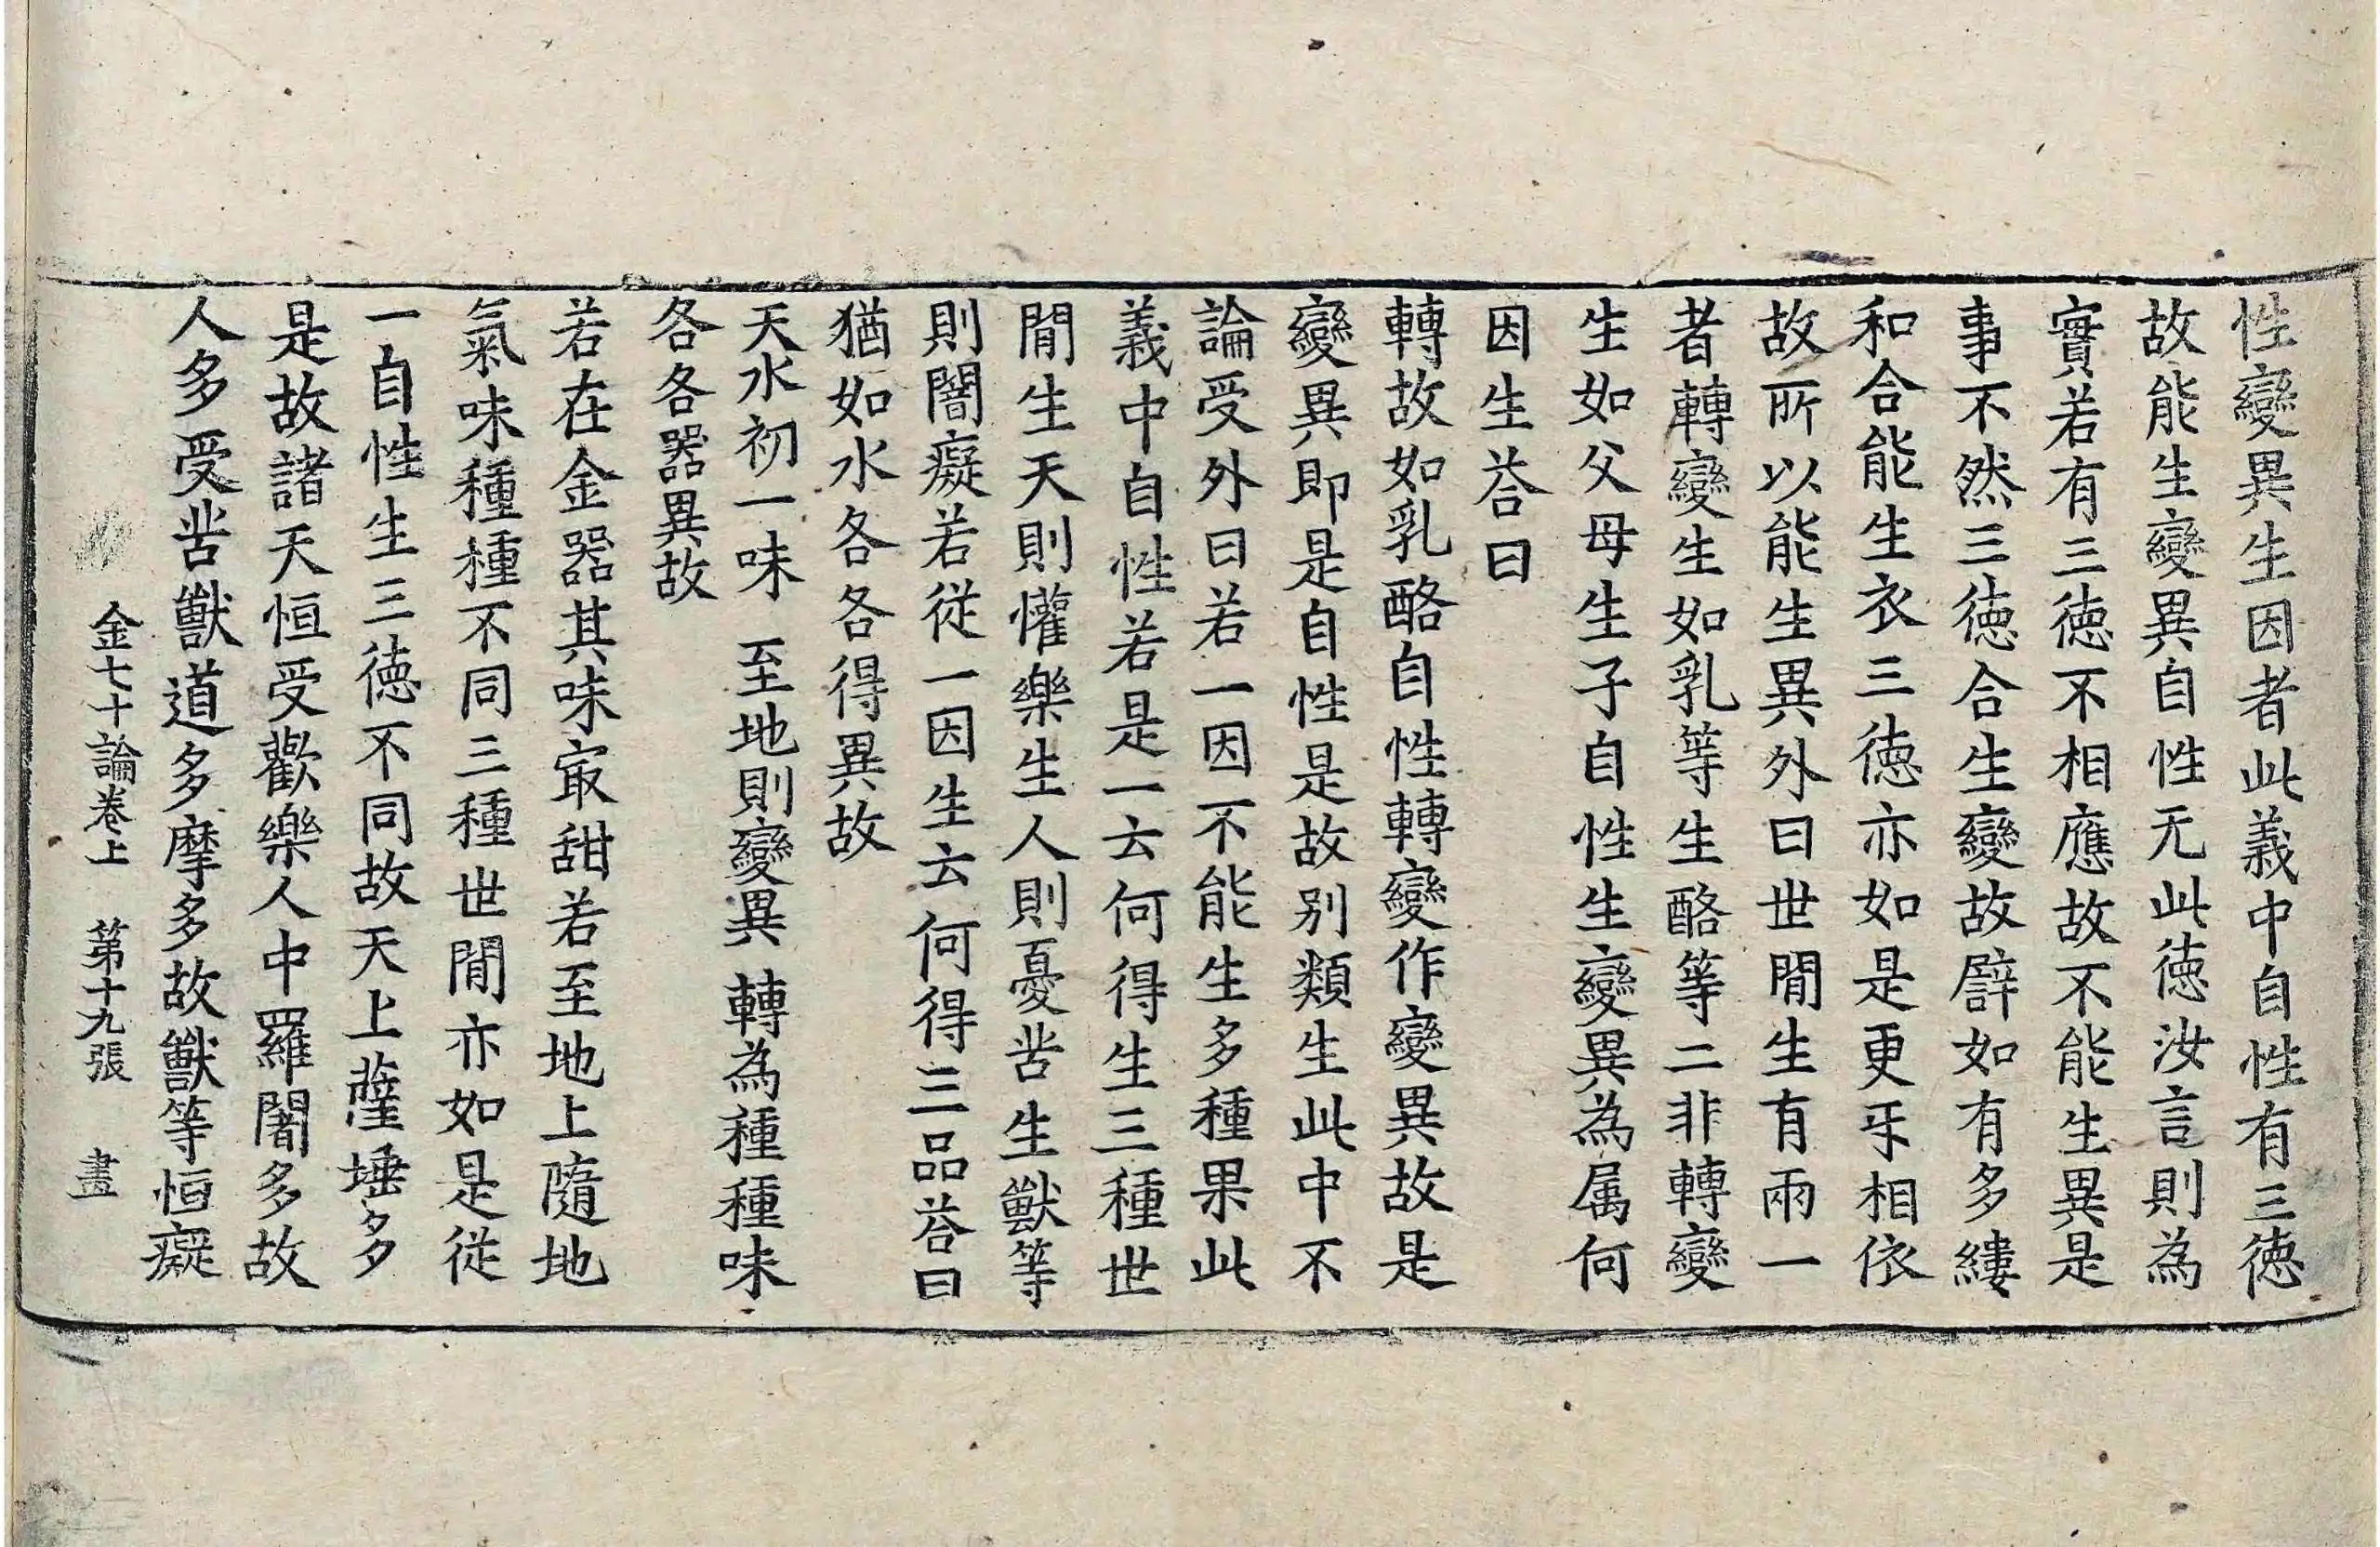 性變異生因者此義中自性有三徳
故能生變異自性无此徳汝言則為
實若有三徳不相應故不能生異是
事不然三徳合生變故辟如有多縷
和合能生衣三徳亦如是更乐相依
故所以能生異外曰世間生有兩一
者轉變生如乳等生酪等二非轉變
生如父母生子自性生變異為属何
因生荅曰
轉故如乳酪自性轉變作變異故是
變異即是自性是故别類生此中不
論受外曰若一因不能生多種果此
義中自性若是一云何得生三種世
間生天則懽樂生人則憂苦生獸等
則闇癡若從一因生云何得三品荅曰
猶如水各各得異故
天水初一味 至地則變異 轉為種種味
各各器異故
若在金器其味㝡甜若至地上隨地
氣味種種不同三種世間亦如是從
一自性生三徳不同故天上薩埵多
是故諸天恒受歡樂人中羅闍多故
人多受苦獸道多摩多故獸等恒癡
金七十論卷上 第十九張 畫